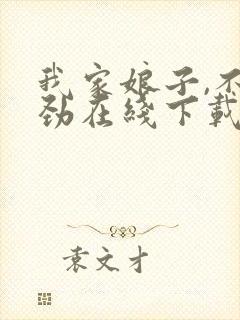 我家娘子,不
劲在线下载
袁文才